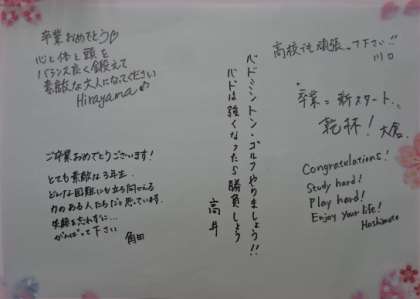 卒業おめでとう♡
心と体と頭を
バランス良く鍛えて
素敵な大人になってください
Hirayama♪
高校でも頑張って下さい!!
川口
バドミントン・ゴルフやりましょう!!
バドは強くなったら勝負しましょう
高井
"卒業=新スタート"
乾杯! 大倉.
ご卒業おめでとうございます!
とても素敵な3年生.
どんな困難にも立ち向かえる
力のある人たちだと思っています.
笑顔を忘れずに...
がんばって下さい
角田
Congratulations!
Study hard!
Play hard!
Enjoy your life!
Hashimoto